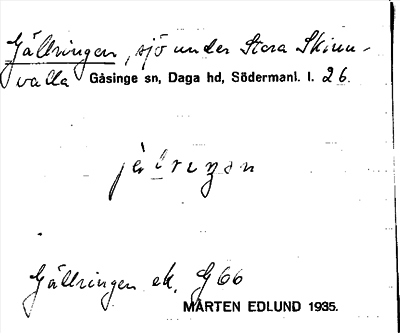 Gällringen, sjö under Stora Skinn-
valla Gåsinge sn, Daga hd, Södermanl. l. 26.
Gällringen ek. G66
MÅRTEN EDLUND 1935.